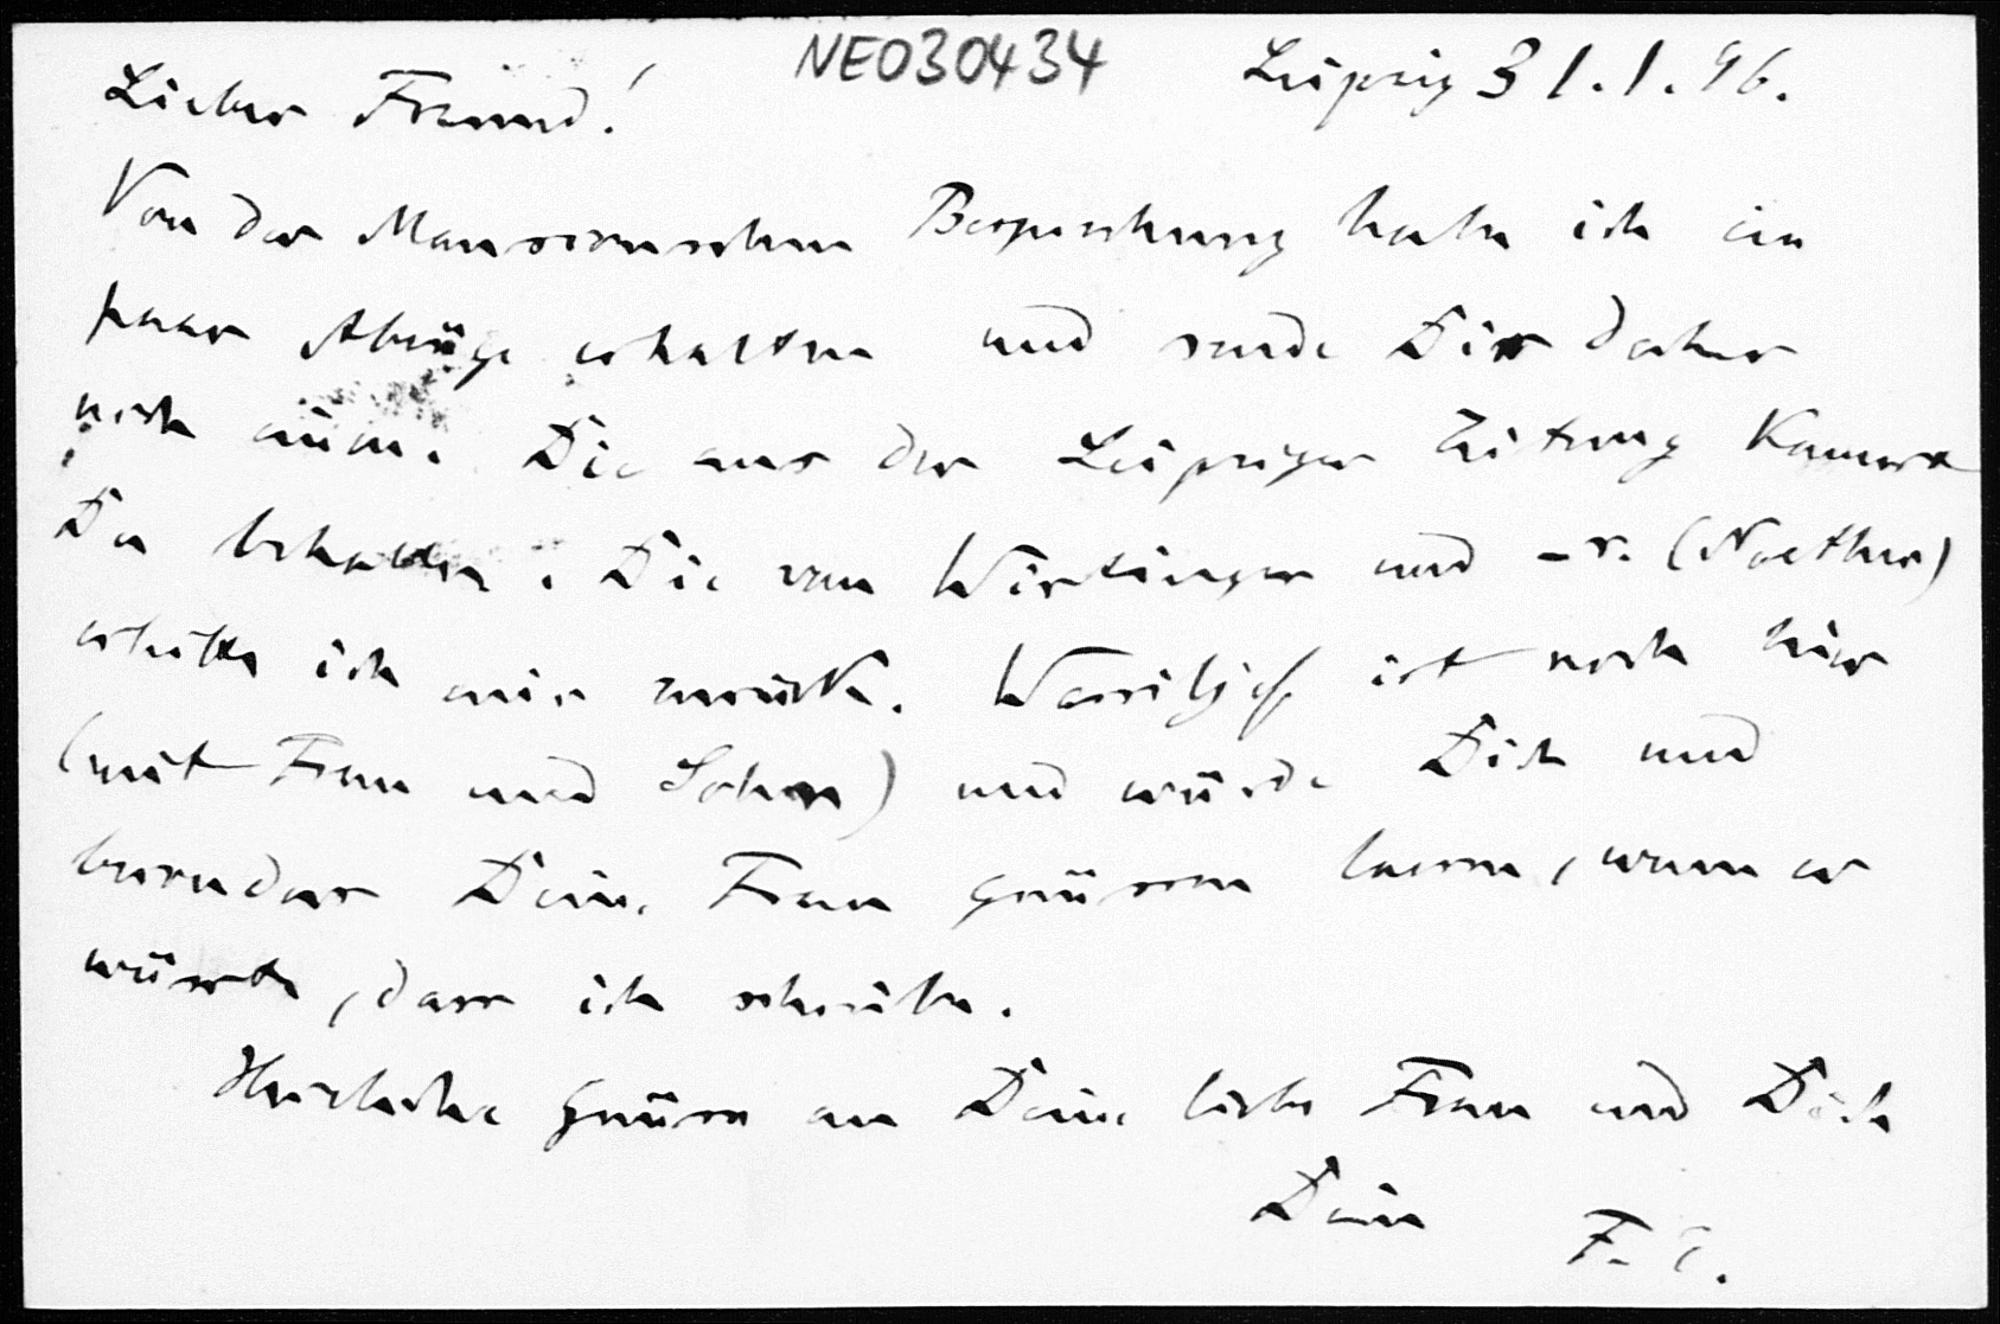 NEO30434
Leipzig 31.1.96.
Lieber Freund!
Von der Mansionschen Besprechung habe ich ein
paar Abzüge erhalten und sende Dir daher
noch einen. Die aus der Leipziger Zeitung kannst
Du behalten. Die von Wirtinger und -r. (Noether)
erbitte ich mir zurück. Wassiljef ist noch hier
(mit Frau und Sohn) und würde Dich und
besonders Deine Frau grüssen lassen, wenn er
wüsste, dass ich schreibe.
Herzliche Grüsse an Deine liebe Frau und Dich
Dein
F. E.